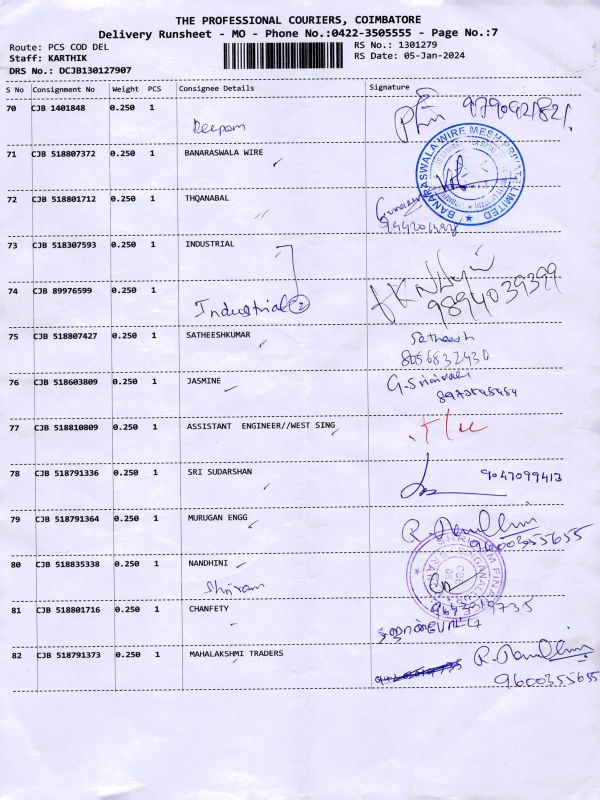 THE PROFESSIONAL COURIERS, COIMBATORE
Delivery Runsheet - MO - Phone No.:0422-3505555 - Page No.:7
Route: PCS COD DEL
RS No.: 1301279
Staff: KARTHIK
RS Date: 05-Jan-2024
DRS No.: DCJB130127907
S No Consignment No Weight PCS Consignee Details Signature
70 CJB 1401848 0.250 1
Deepam
71 CJB 518807372 0.250 1 BANARASWALA WIRE
BANARASWALA WIRE MESH PRIVATE LIMITED
72 CJB 518801712 0.250 1 THQANABAL
73 CJB 518307593 0.250 1 INDUSTRIAL
74 CJB 89976599 0.250 1
Industrial 2
9894039399
75 CJB 518807427 0.250 1 SATHEESHKUMAR
Satheesh
8056832430
76 CJB 518603809 0.250 1 JASMINE
77 CJB 518810809 0.250 1 ASSISTANT ENGINEER//WEST SING
78 CJB 518791336 0.250 1 SRI SUDARSHAN
9047099413
79 CJB 518791364 0.250 1 MURUGAN ENGG
9600355655
80 CJB 518835338 0.250 1 NANDHINI
Shriram
81 CJB 518801716 0.250 1 CHANFETY
82 CJB 518791373 0.250 1 MAHALAKSHMI TRADERS
9600355655